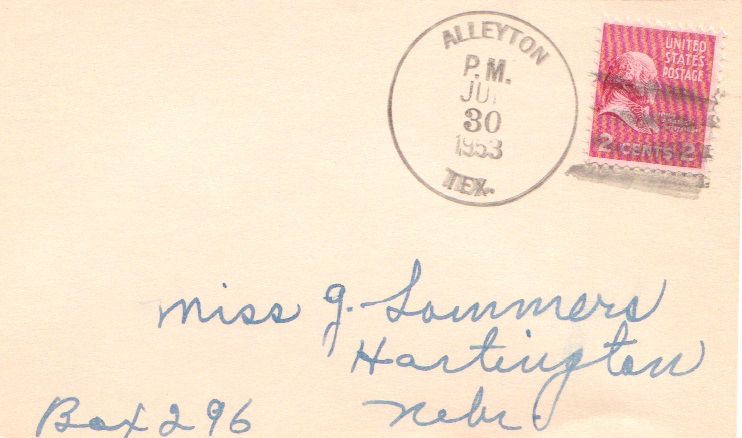 ALLEYTON
P.M.
30
1953
TEX.
UNITED
STATES
POSTAGE
2 CENTS 2
Miss J. Sommers
Hartington
Box 296 Nebr.